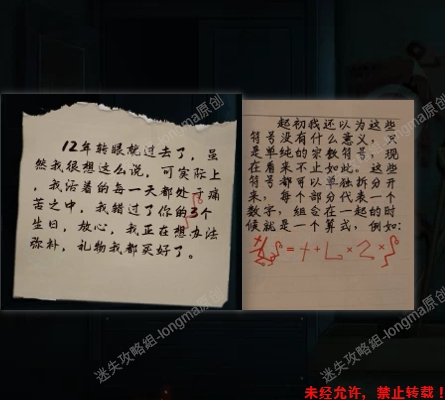 12年转眼就过去了，虽
然我很想这么说，可实际上
，我活着的每一天都处于痛
苦之中，我错过了你的3个
生日，放心，我正在想办法
弥补，礼物我都买好了。
起初我还以为这些
符号没有什么意义，只
是单纯的宗教符号，现
在看来不止如此。这些
符号都可以单独拆分开
来，每个部分代表一个
数字，组合在一起的时
候就是一个算式，例如:
迷失攻略组-longma原创
迷失攻略组-longma原创
未经允许，禁止转载！